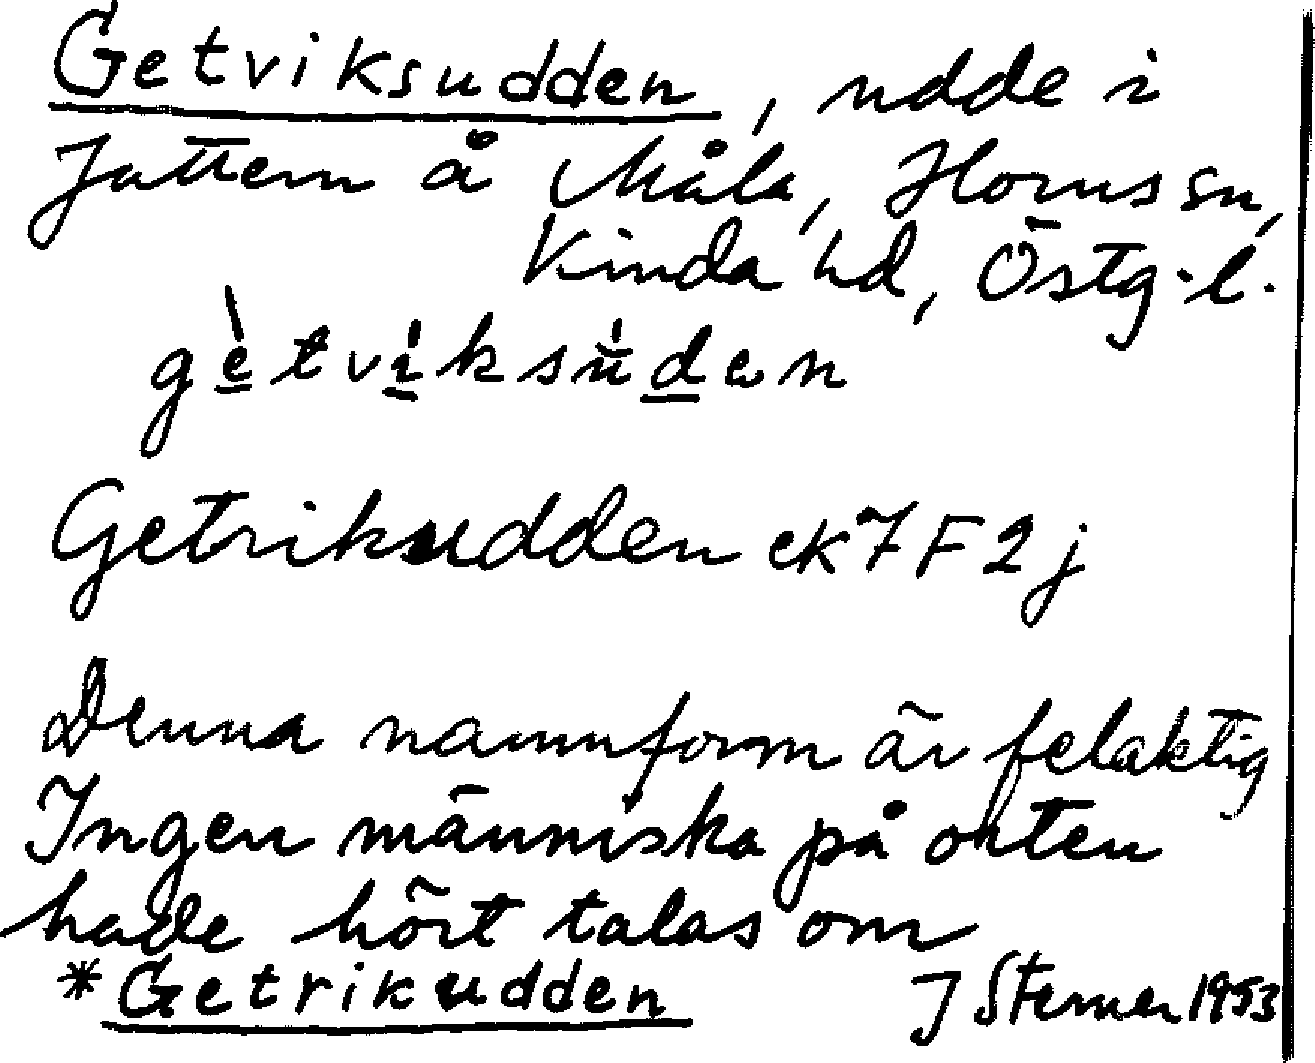 Getviksudden, udde i
Jättern å Måla, Horns sn,
Kinda hd, Östg.l.
gètvíksúden
Getrikudden ek 7 F 2 j
Denna namnform är felaktig
Ingen människa på orten
hade hört talas om
*Getrikudden J Sterner 1953